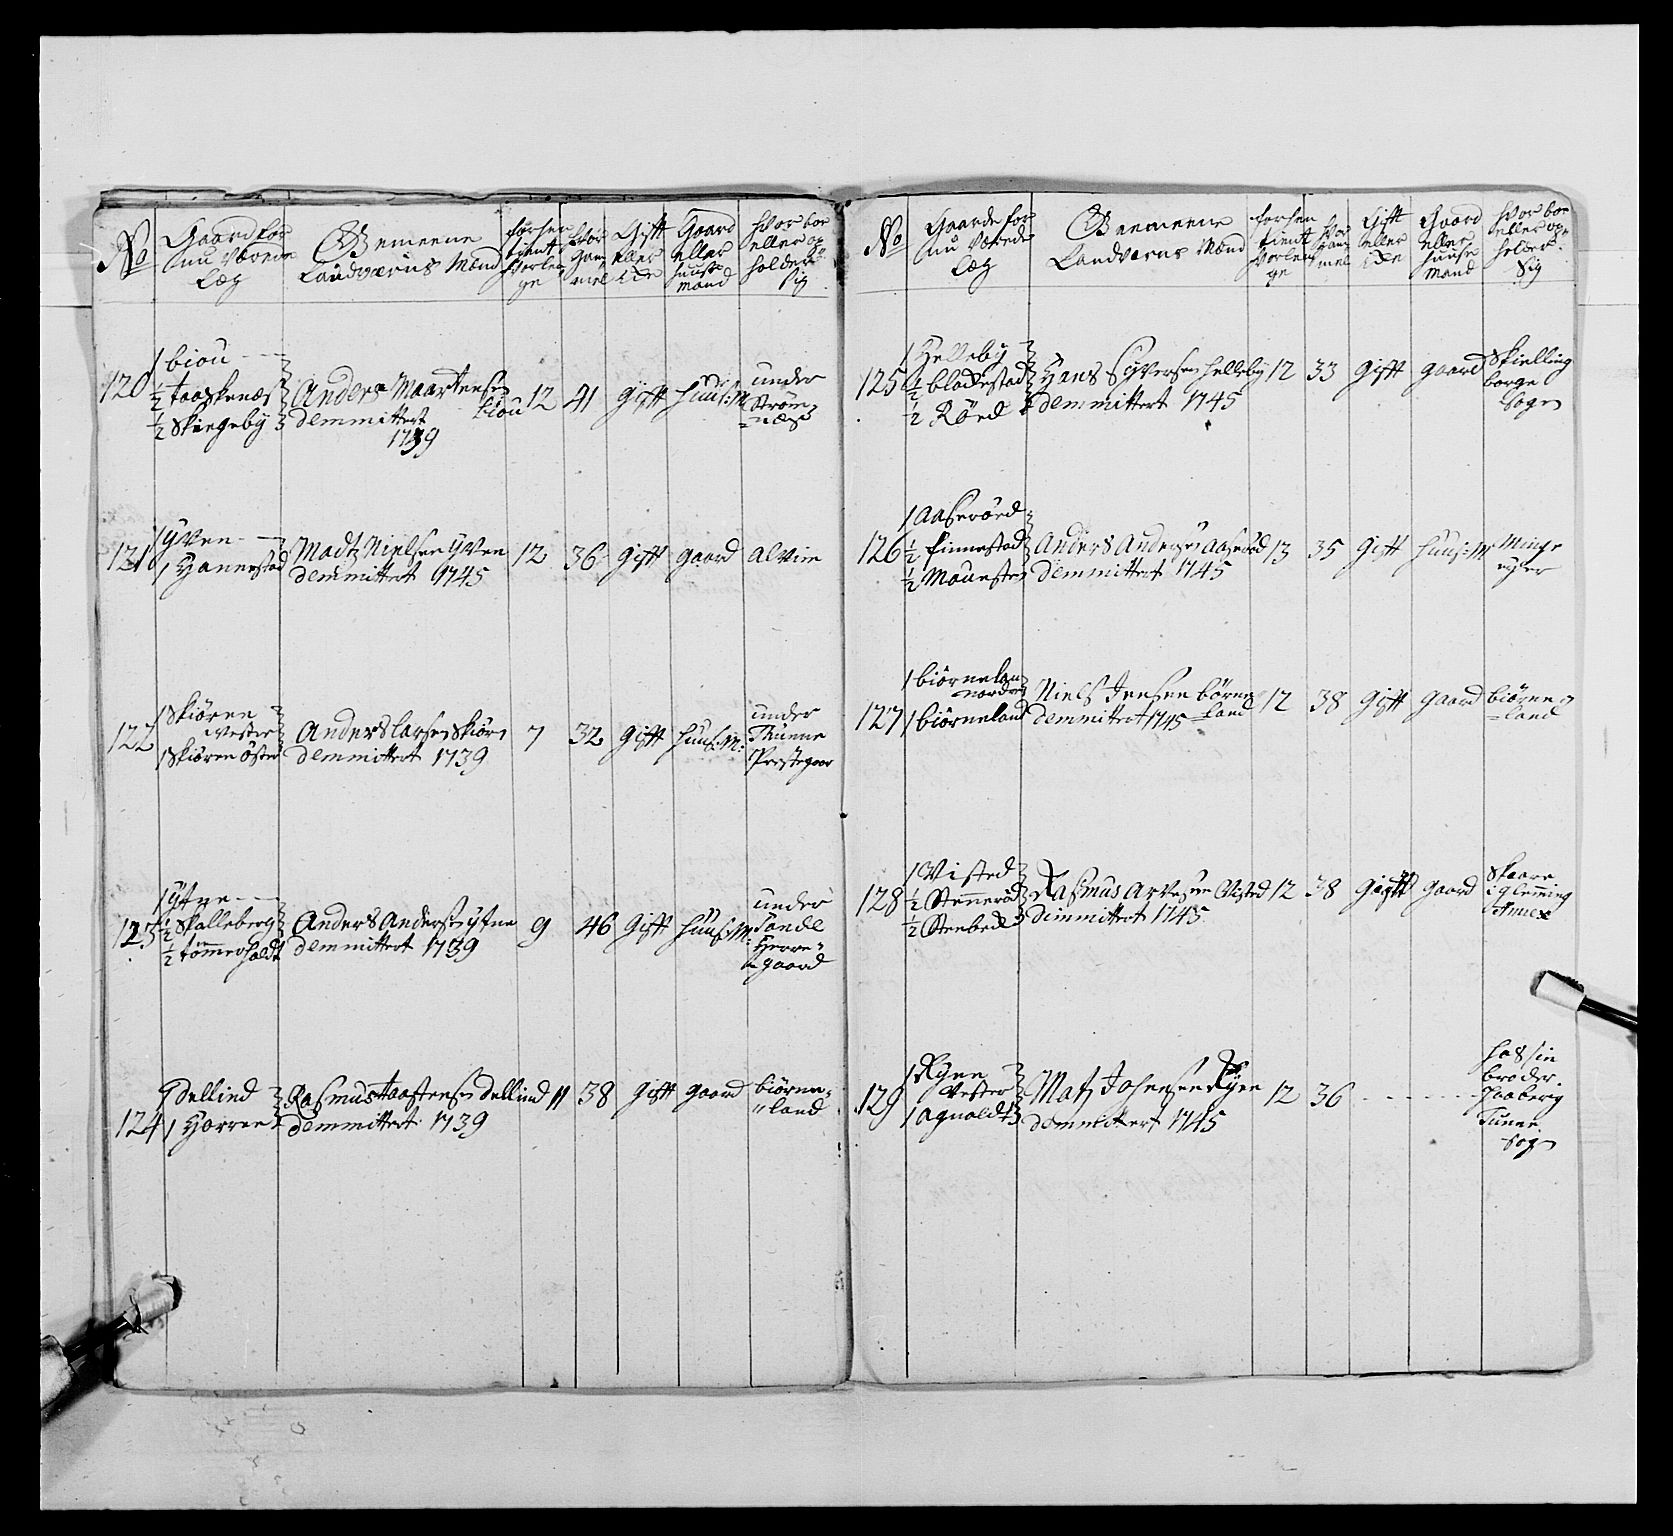 No
Gaard for
nu værende
Læg
Gemeene
Landværns Mænd
forhen
tient
hvorlen
ge
Hvor
gam
mel
Gift
eller
Ey
Gaard
eller
huuse
mand
Hvor boe
eller op
holder
sig
120
1 biou
1/2 taaskenæs
1/2 Skiegeby
Anders Maartensen
biou
demmittert
1739
12
41
Gift
huus: M
under
Strøm=
=næs
121
1 yven
1 Hannestad
Madtz Nielsen yven
demmittert 1745
12
36
gift
gaard
alvim
122
1 Skiøren
vester
1 Skiøren øster
Anders larsen Skiør
demmittert 1739
7
32
Gift
huus: M:
under
Thunne
Prestegaar
123
1 yfne
1/2 Skalleberg
1/2 tømmerholdt
Anders Anderss: yfne
demmittert 1739
9
46
Gift
huus: M:
under
Sande
Herre=
=gaard
124
1 Harren
Rasmus taastensen
demmittert 1739
11
38
Gift
gaard
biørne=
land
No
Gaarde for
nu værende
Læg
Gemeene
Landværns Mænd
forhen
tient
hvorlen
ge
Hvor
gam
mel
Gift
eller
Gaard
eller
huuse
Mand
Hvor boe
eller op=
holder
sig
125
1 Helleby
1/2 bladestad
1/2 Rørd
Hans Syversen helleby
demmittert 1745
12
33
Gift
gaard
Skielling
borge
Sogn
126
1 Aaserød
1/2 finnestad
1/2 Mousten
Anders Andersen Aaserød
demmittert 1745
13
35
Gift
huus: M
Minge
eyer
127
1 biørnelan
nordre
1 biørneland
Niels Jensen børne
=land
demmittert 1745
12
38
Gift
Gaard
biørne=
=land
128
1 Visted
1/2 Stennerød
1/2 Steenbeck
Rasmus Arvesen Visted
dimmittert 1745
12
38
Gift
gaard
Skaare
i Glemming
Annex
129
1 Ryen
Vester
1 agnaldt
Mats Johnsen Ryen
demmittert 1745
12
36
hos sin
broder
Tunne
Sogn